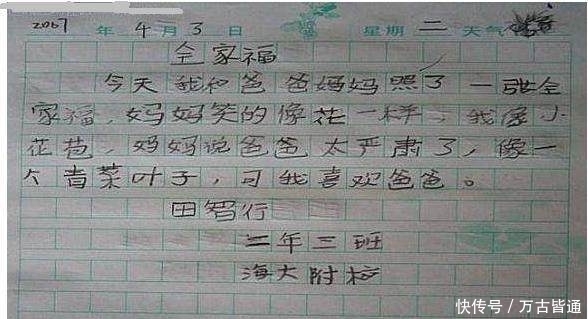 2007 年 4 月 3 日 星期 二 天气
全家福
今天我和爸爸妈妈照了一张全
家福，妈妈笑的像花一样，我像小
花苞，妈妈说爸爸太严肃了，像一
个青菜叶子，可我喜欢爸爸。
田智行
二年三班
海大附校
快传号/万古皆通